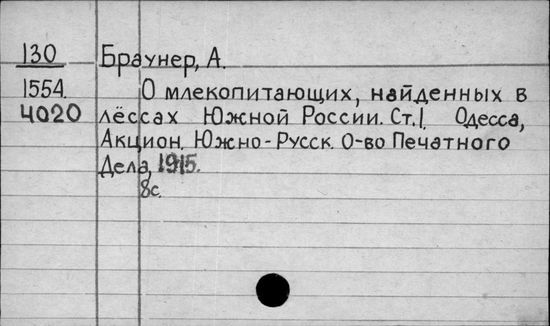 130 Браунер, А.
1554. О млекопитающих, найденных в
4020 лёссах Южной России. Ст.I. Одесса,
Акцион. Южно-Русск. О-во Печатного
Дела, 1915.
8с.